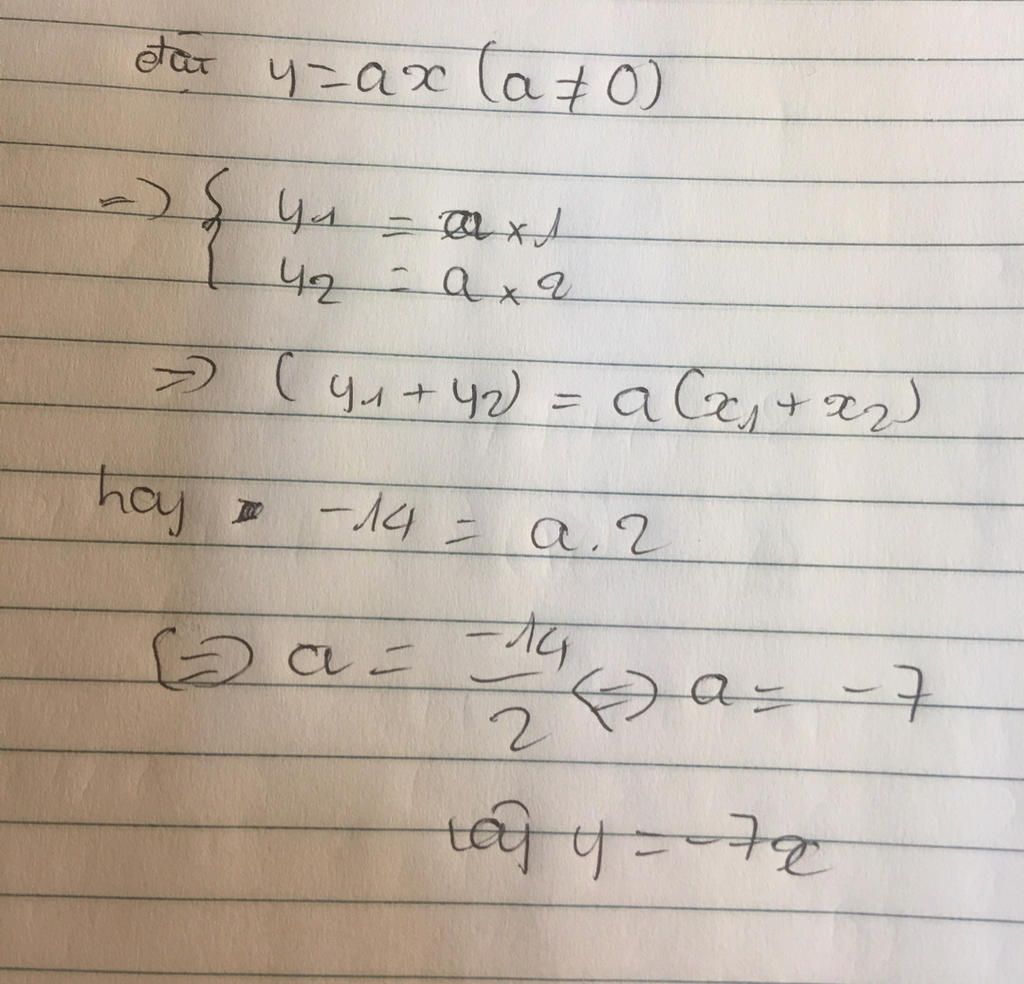 đặt y = ax (a ≠ 0)
=> { y1 = a x1
y2 = a x2
=> (y1 + y2) = a(x1 + x2)
hay -14 = a.2
<=> a = -14/2 <=> a = -7
vậy y = -7x